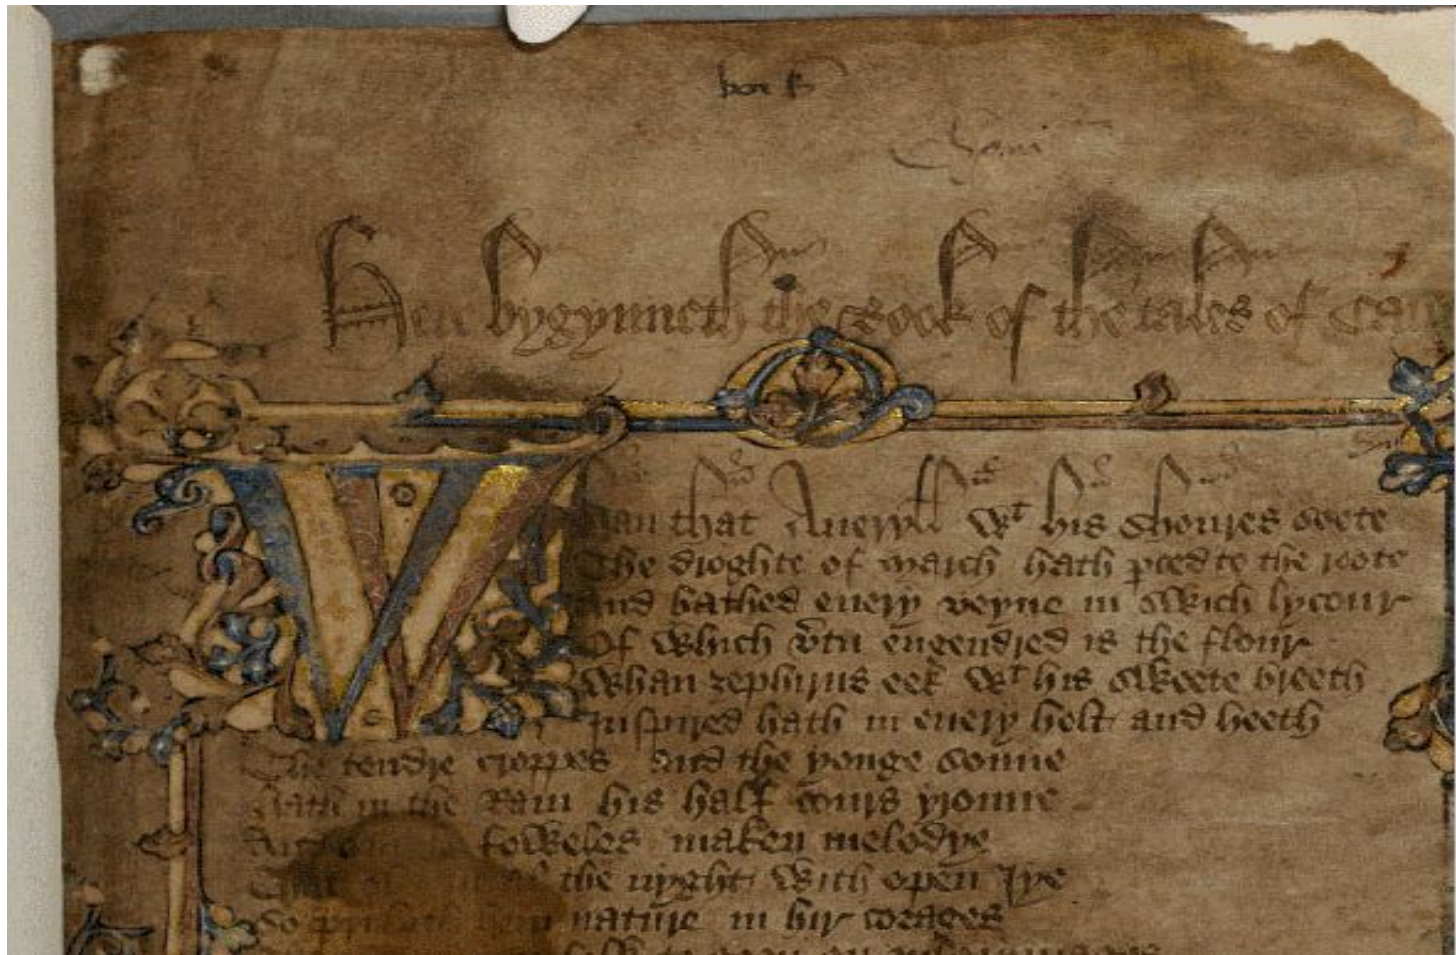 Here bygynneth the Book of the tales of Caun
Whan that Aueryłł wt his shoures soote
The droghte of march hath pced to the roote
And bathed euery veyne in swich lycour
Of which vtu engendred is the flour
Whan zephirus eek wt his swete breeth
Inspired hath in euery holt and heeth
The tendre croppes and the yonge sonne
hath in the Ram his half cours yronne
foweles maken melodye
That the nyght with open Iye
So priketh hem nature in hir corages
to goon on pilgrimages